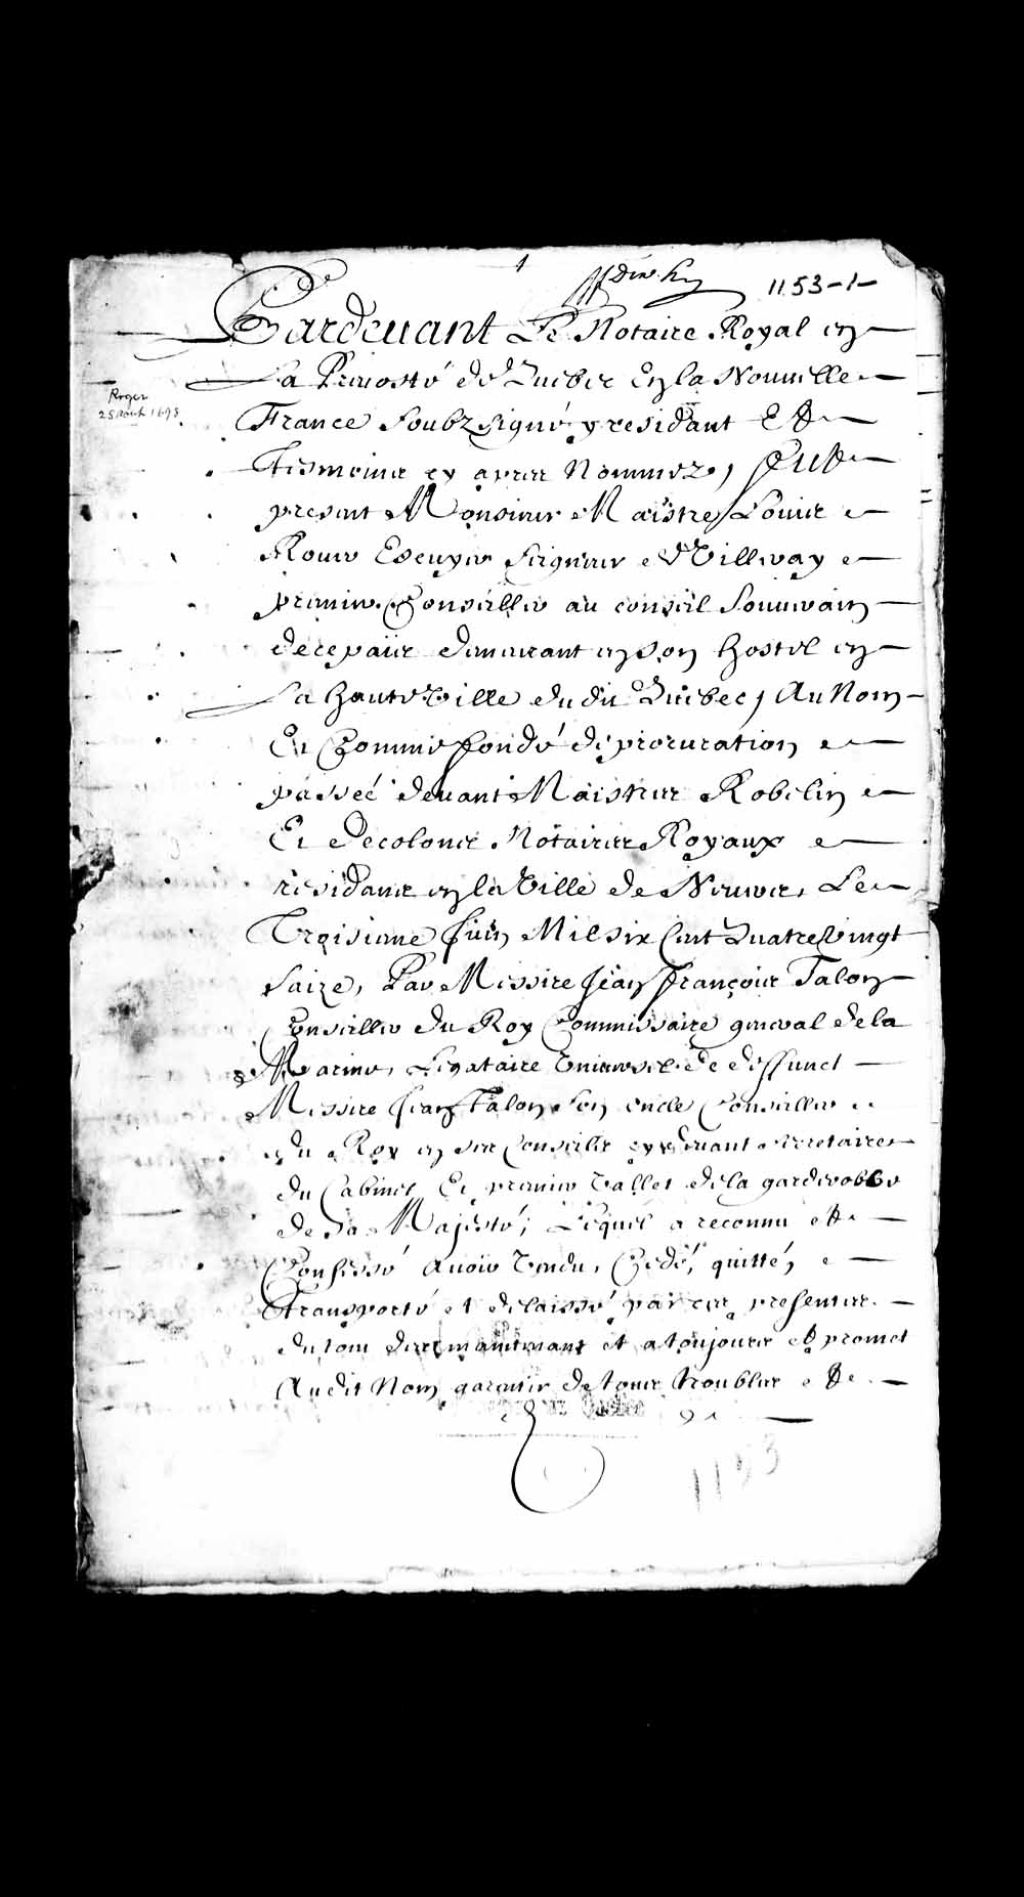 1
1153-1-
Pardeuant Le Notaire Royal en
La Preuosté de Quebec En la Nouuelle
Roger
25 Aout 1698
France Soubz signé y residant Et
tesmoins cy apres Nommez, fut
present Monsieur Maistre Louis
Rouer Escuyer Seigneur de Villeray
premier Conseiller au conseil Souuerain
de ce païs demeurant en son hostel en
La haute Ville du dit Quebec, Au Nom
Et Comme fondé de procuration
passeé deuant Maistres Robelin
Et Decolons Notaires Royaux
residans en la Ville de Neuers, Le
Troisieme Juin Mil six Cent Quatre Vingt
Saize, Par Messire Jean François Talon
Conseiller du Roy Commissaire general de la
Marine, Legataire Vniuersel de deffunct
Messire Jean Talon son oncle Conseiller
du Roy en ses Conseils cy deuant secretaire
du Cabinet Et premier Vallet de la garderobbe
de Sa Majesté, Lequel a reconnu et
Confessé Auoir Vendu, Cedé, quitté,
transporté et delaissé par ces presentes
du tout des maintenant et a toujours et promet
Au dit Nom garentir de tous troubles et
1153